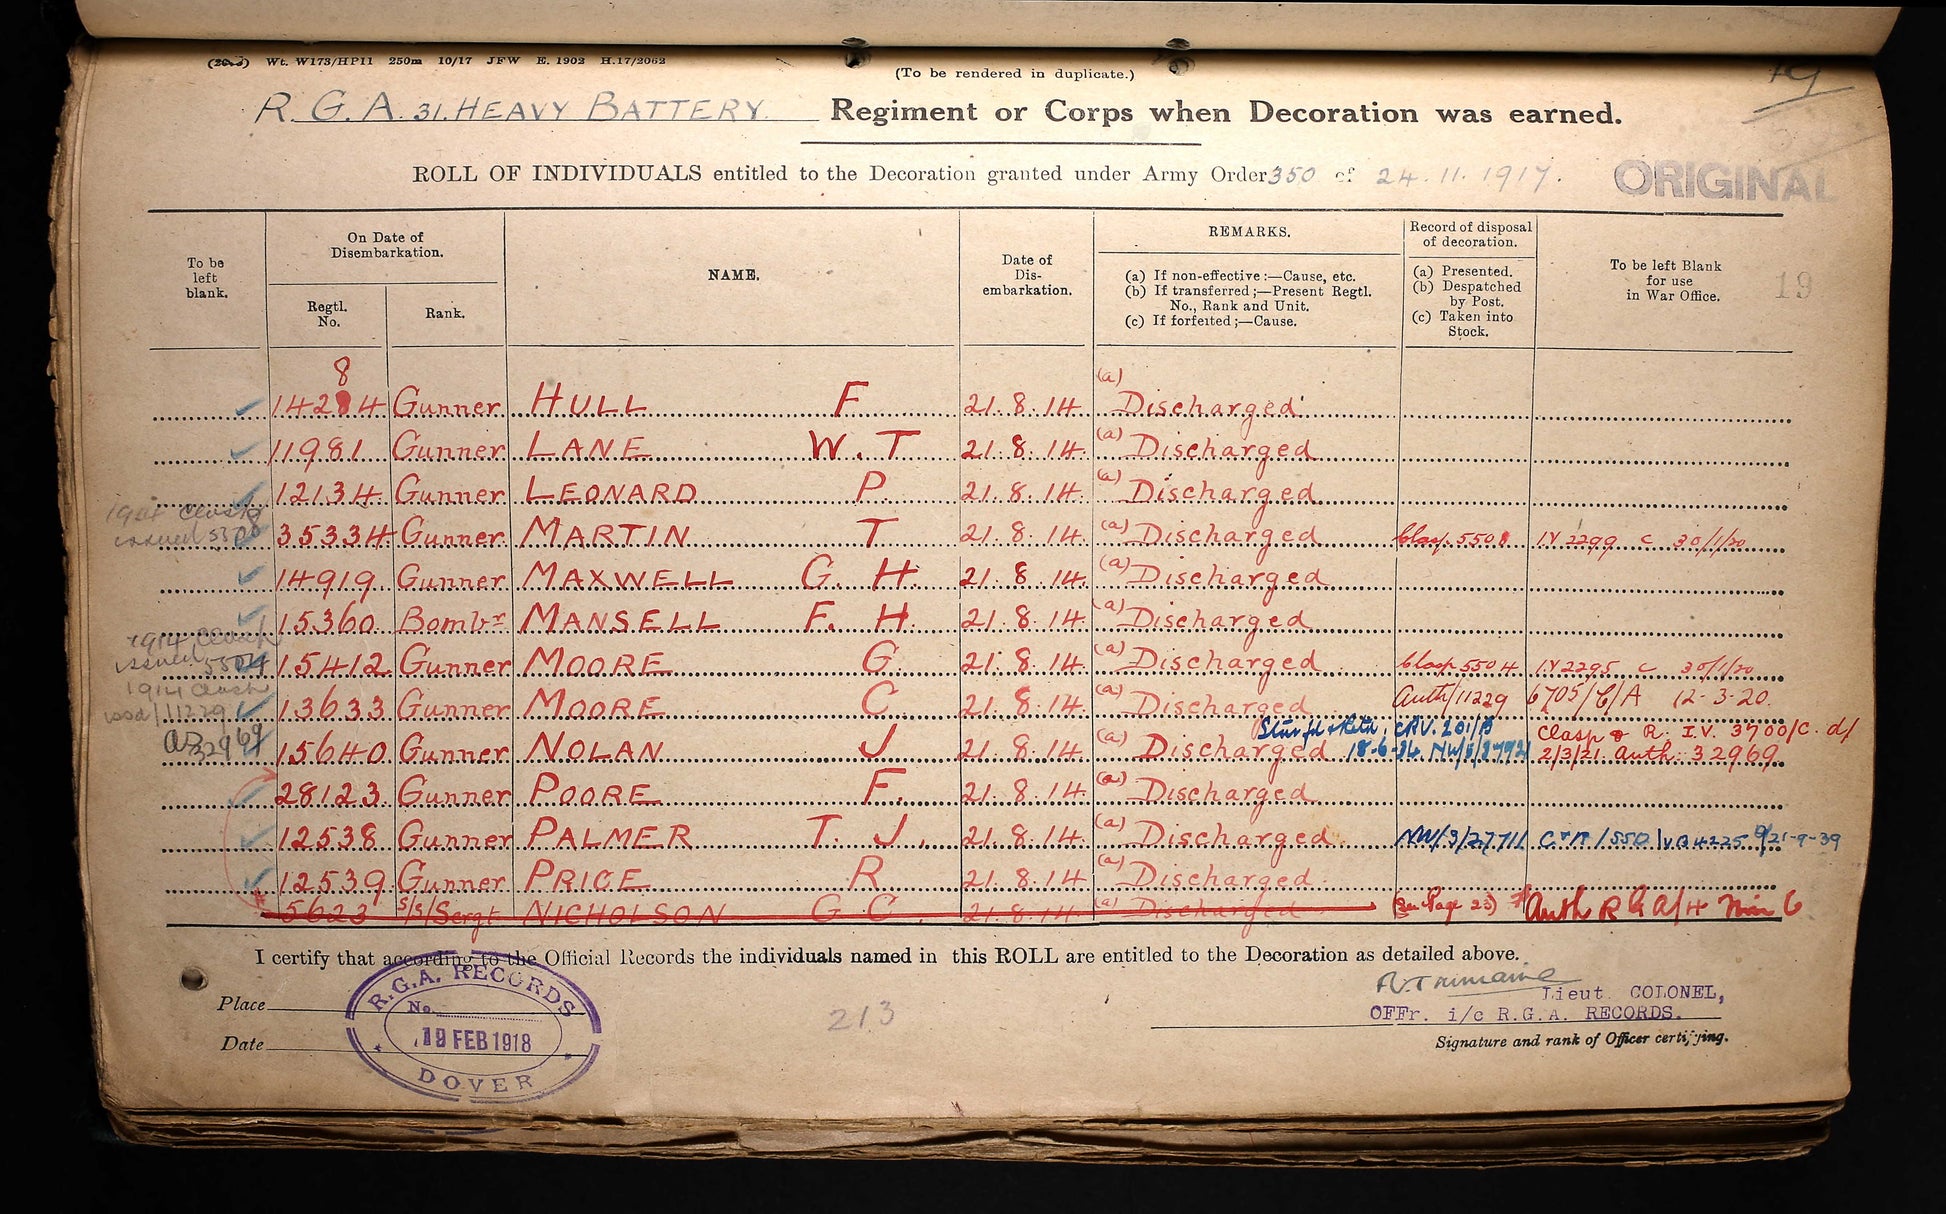 Wt. W173/HP11 250m 10/17 JFW E. 1902 H.17/2062
(To be rendered in duplicate.)
R.G.A. 31. HEAVY BATTERY. Regiment or Corps when Decoration was earned.
ROLL OF INDIVIDUALS entitled to the Decoration granted under Army Order 350 of 24.11.1917.
ORIGINAL
To be left blank.
On Date of Disembarkation.
Regtl. No.
Rank.
NAME.
Date of Dis-embarkation.
REMARKS.
(a) If non-effective :—Cause, etc.
(b) If transferred ;—Present Regtl. No., Rank and Unit.
(c) If forfeited ;—Cause.
Record of disposal of decoration.
(a) Presented.
(b) Despatched by Post.
(c) Taken into Stock.
To be left Blank for use in War Office.
19
8
14284 Gunner HULL F 21.8.14 (a) Discharged
11981 Gunner LANE W. T 21.8.14. (a) Discharged
12134 Gunner LEONARD P. 21.8.14. (a) Discharged
1914 Clasp issued 5508 35334 Gunner MARTIN T 21.8.14. (a) Discharged Clasp 5508 IV 2299 C 30/1/20
14919 Gunner MAXWELL G. H. 21.8.14. (a) Discharged
15360 Bombr MANSELL F. H. 21.8.14. (a) Discharged
1914 Clasp issued 5504 15412 Gunner MOORE G. 21.8.14. (a) Discharged Clasp 5504 IV 2295 C 30/1/20
1914 Clasp issd/11229 13633 Gunner MOORE C. 21.8.14. (a) Discharged Auth/11229 6705/C/A 12-3-20.
32969 15640 Gunner NOLAN J 21.8.14. (a) Discharged 18-6-34. Clasp & R. I.V. 3700/C. d/ 2/3/21. Auth. 32969
28123 Gunner POORE F. 21.8.14. (a) Discharged
12538 Gunner PALMER T. J. 21.8.14. (a) Discharged NW/3/27711 21-9-39
12539 Gunner PRICE R 21.8.14 (a) Discharged
5623 S/S/Sergt NICHOLSON G C. 21.8.14. (a) Discharged (See Page 23) Auth R G A/4 Min 6
I certify that according to the Official Records the individuals named in this ROLL are entitled to the Decoration as detailed above.
Place
Date
R.G.A. RECORDS
No.
19 FEB 1918
DOVER
213
Lieut. COLONEL,
OFFr. i/c R.G.A. RECORDS.
Signature and rank of Officer certifying.